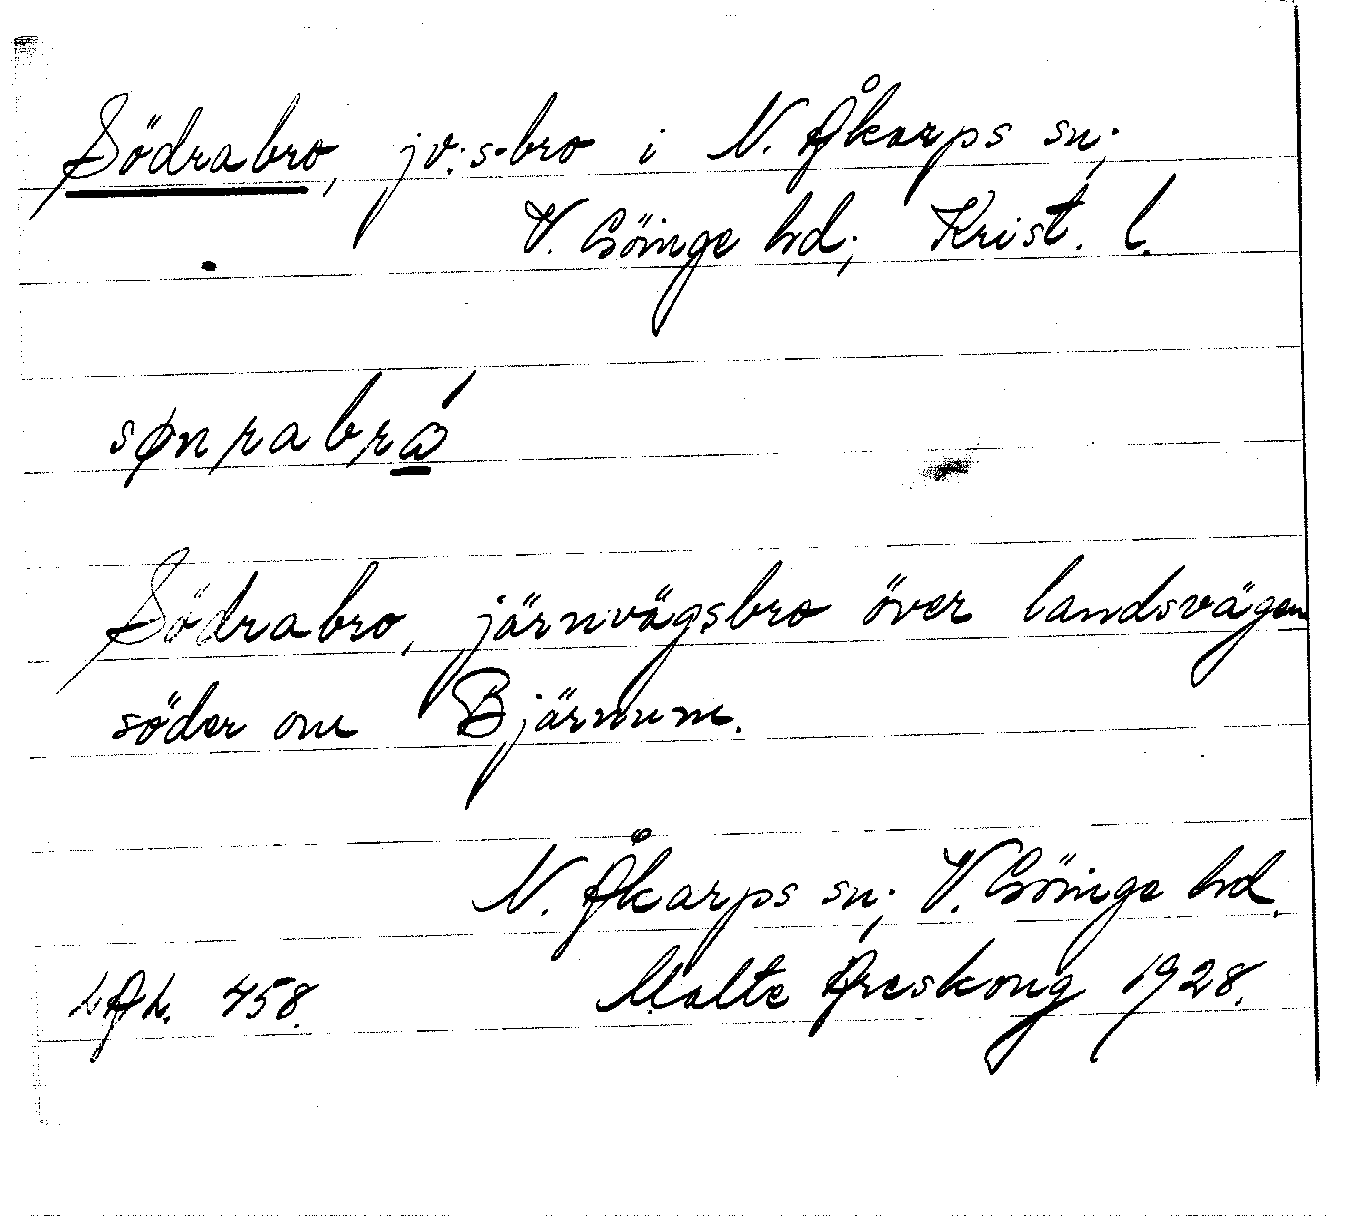 Södrabro, jv:s-bro i N. Åkarps sn;
V. Göinge hd; Krist. l.
sønrabró
Södrabro, järnvägsbro över landsvägen
söder om Bjärnum.
N. Åkarps sn; V. Göinge hd.
LAL. 458. Malte Areskoug 1928.